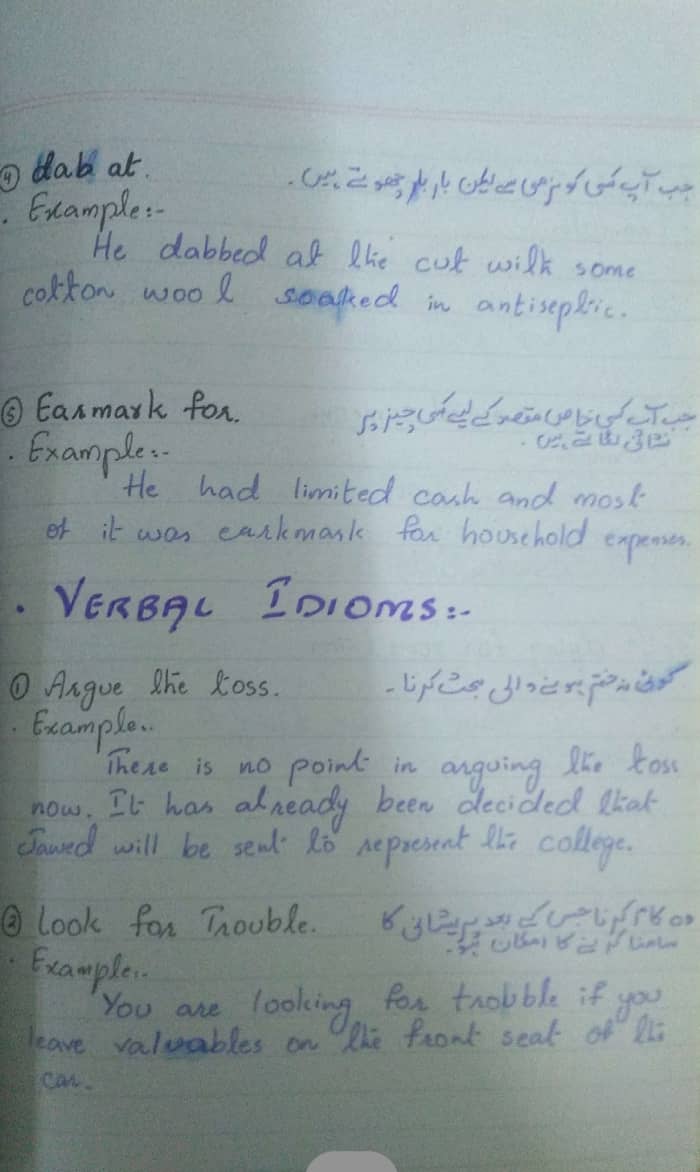 ④ dab at. جب آپ کسی کو نرمی سے لیکن بار بار چھوتے ہیں.
. Example:-
He dabbed at the cut with some
cotton wool soaked in antiseptic.
⑤ Earmark for. جب آپ کسی خاص مقصد کے لیے کسی چیز پر
نشانی لگاتے ہیں.
. Example:-
He had limited cash and most
of it was earkmark for household expenses.
. VERBAL IDIOMS:-
① Argue the toss. کوئی نہ ختم ہونے والی بحث کرنا۔
. Example..
There is no point in arguing the toss
now. It has already been decided that
Jawed will be sent to represent the college.
② Look for Trouble. وہ کام کرنا جس کے بعد پریشانی کا
سامنا کرنے کا امکان ہو۔
. Example..
You are looking for trobble if you
leave valuables on the front seat of the
car.